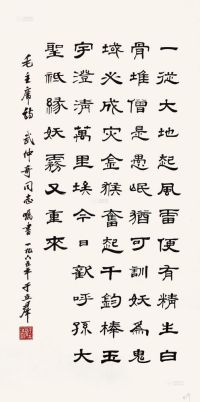 一從大地起風雷便有精生白
骨堆僧是愚氓猶可訓妖為鬼
蜮必成灾金猴奮起千鈞棒玉
宇澄清萬里埃今日歡呼孫大
聖祗緣妖霧又重來
毛主席詩 武仲奇同志囑書 一九六五年 于立群